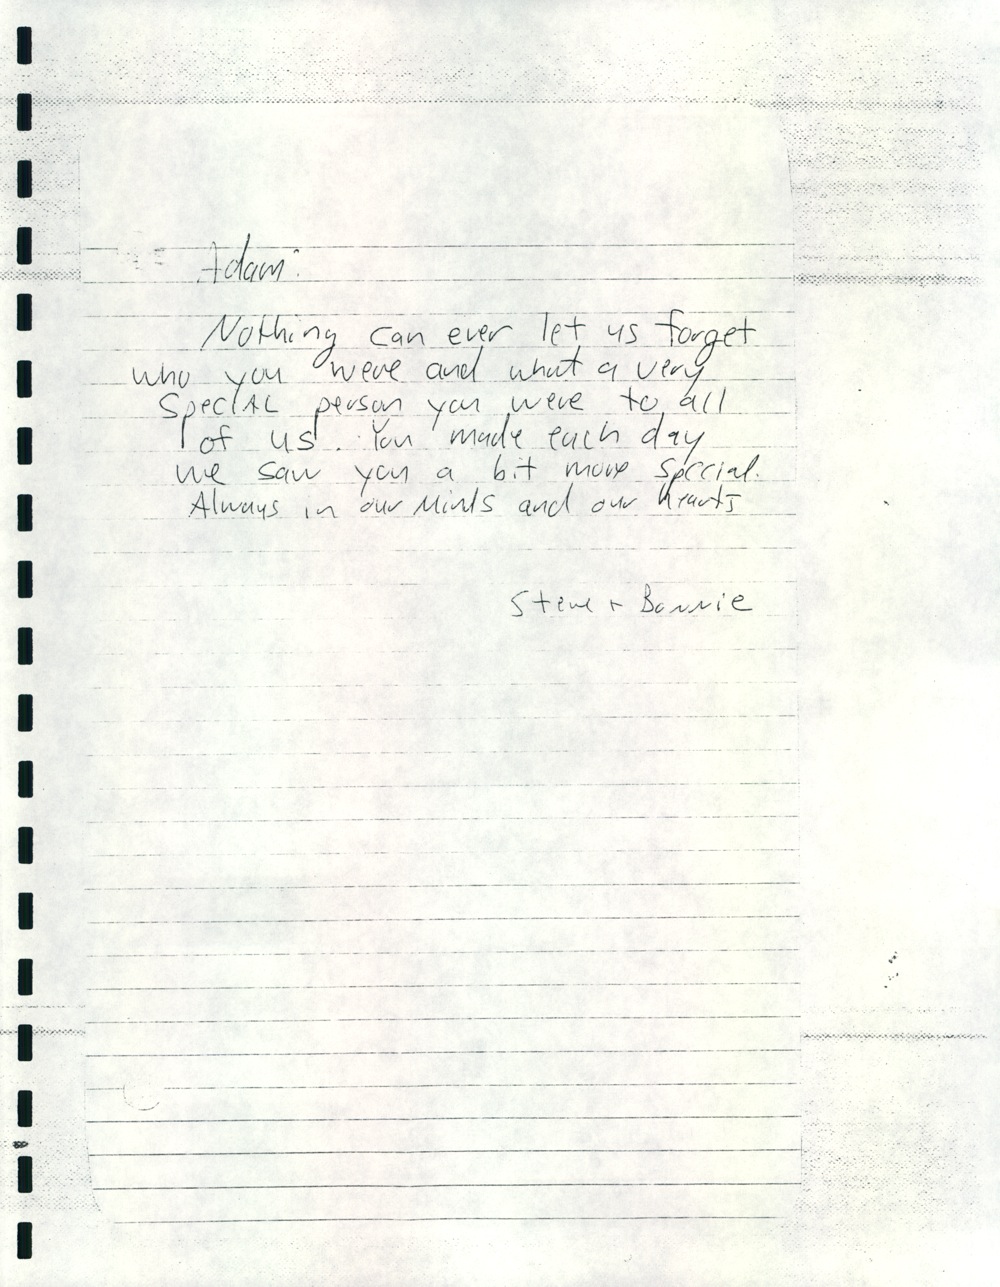 Adam:
Nothing can ever let us forget
who you were and what a very
SpeciAL person you were to all
of us. You made each day
we saw you a bit more special.
Always in our Minds and our hearts
Steve + Bonnie